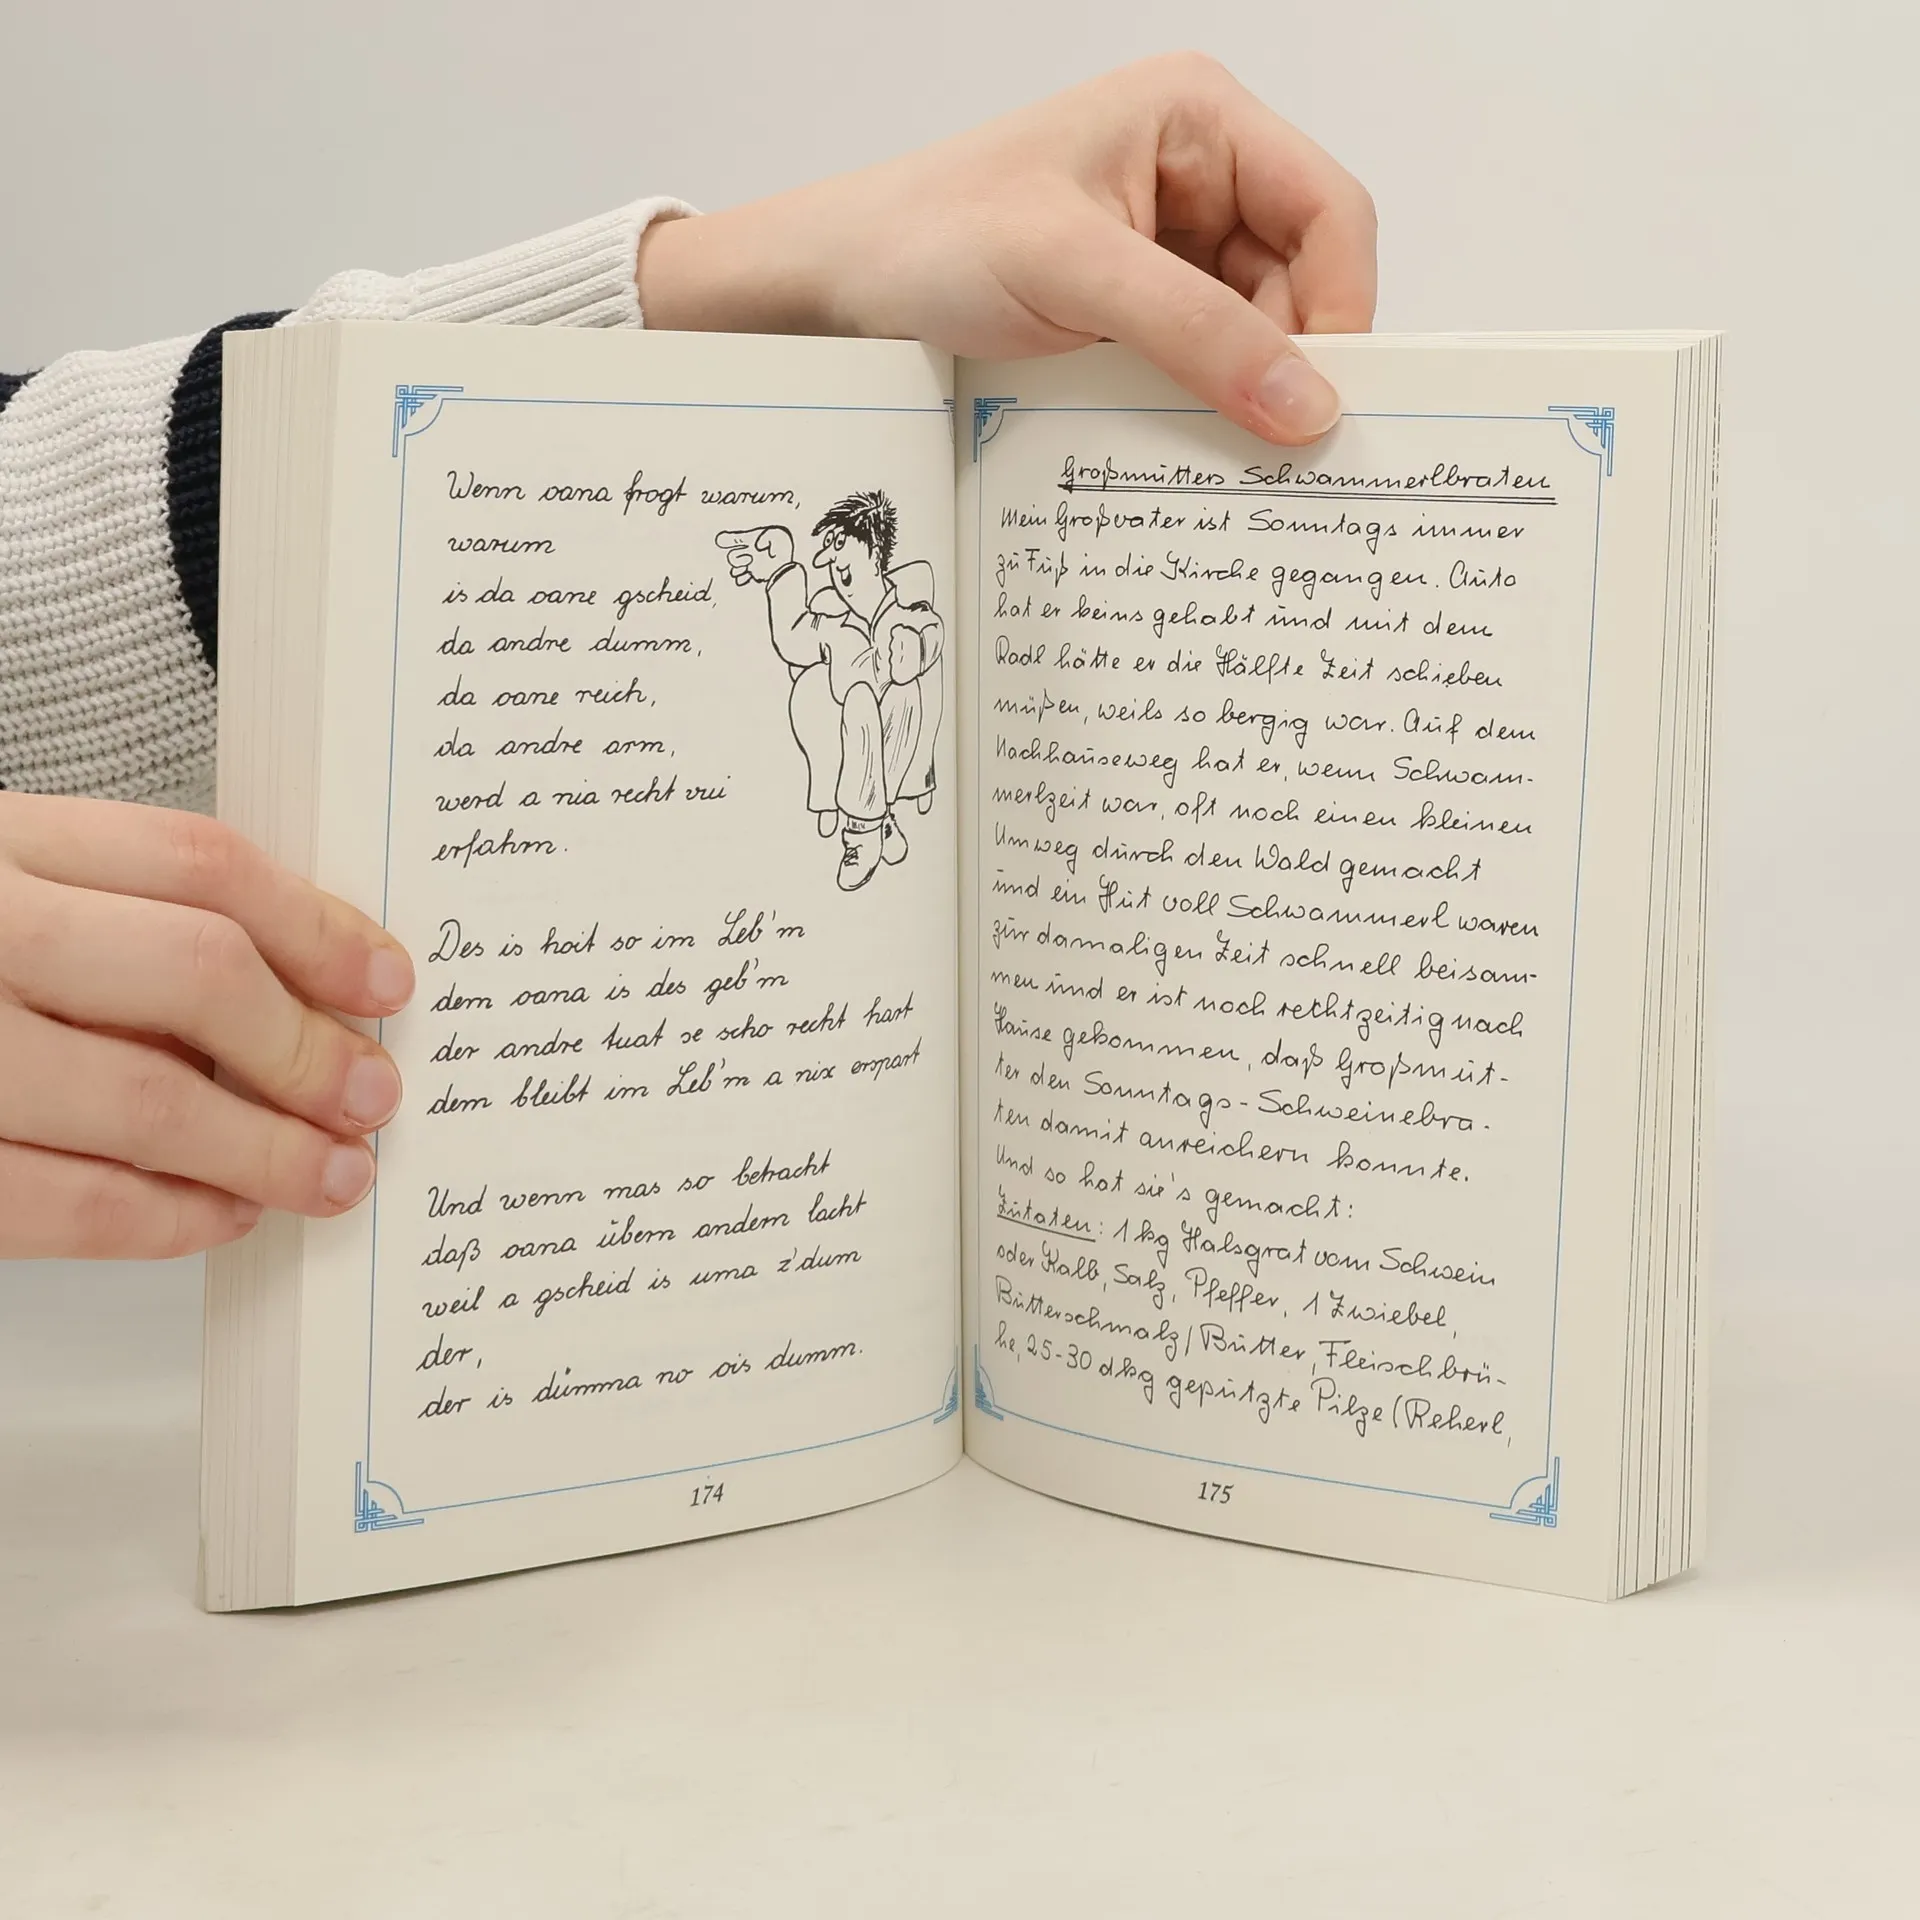 Wenn oana frogt warum,
warum
is da oane gscheid,
da andre dumm,
da oane reich,
da andre arm,
werd a nia recht vui
erfahrn.
Des is hoit so im Leb'm
dem oana is des geb'm
der andre tuat se scho recht hart
dem bleibt im Leb'm a nix erspart
Und wenn mas so betracht
daß oana übern andern lacht
weil a gscheid is uma z'dum
der,
der is dümma no ois dumm.
174
Großmutters Schwammerlbraten
Mein Großvater ist Sonntags immer
zu Fuß in die Kirche gegangen. Auto
hat er keins gehabt und mit dem
Radl hätte er die Hälfte Zeit schieben
müßen, weils so bergig war. Auf dem
Nachhauseweg hat er, wenn Schwam-
merlzeit war, oft noch einen kleinen
Umweg durch den Wald gemacht
und ein Hut voll Schwammerl waren
zur damaligen Zeit schnell beisam-
men und er ist noch rechtzeitig nach
Hause gekommen, daß Großmut-
ter den Sonntags-Schweinebra-
ten damit anreichern konnte.
Und so hat sie's gemacht:
Zutaten: 1 kg Halsgrat vom Schwein
oder Kalb, Salz, Pfeffer, 1 Zwiebel,
Butterschmalz/Butter, Fleischbrü-
he, 25-30 dkg geputzte Pilze (Reherl,
175